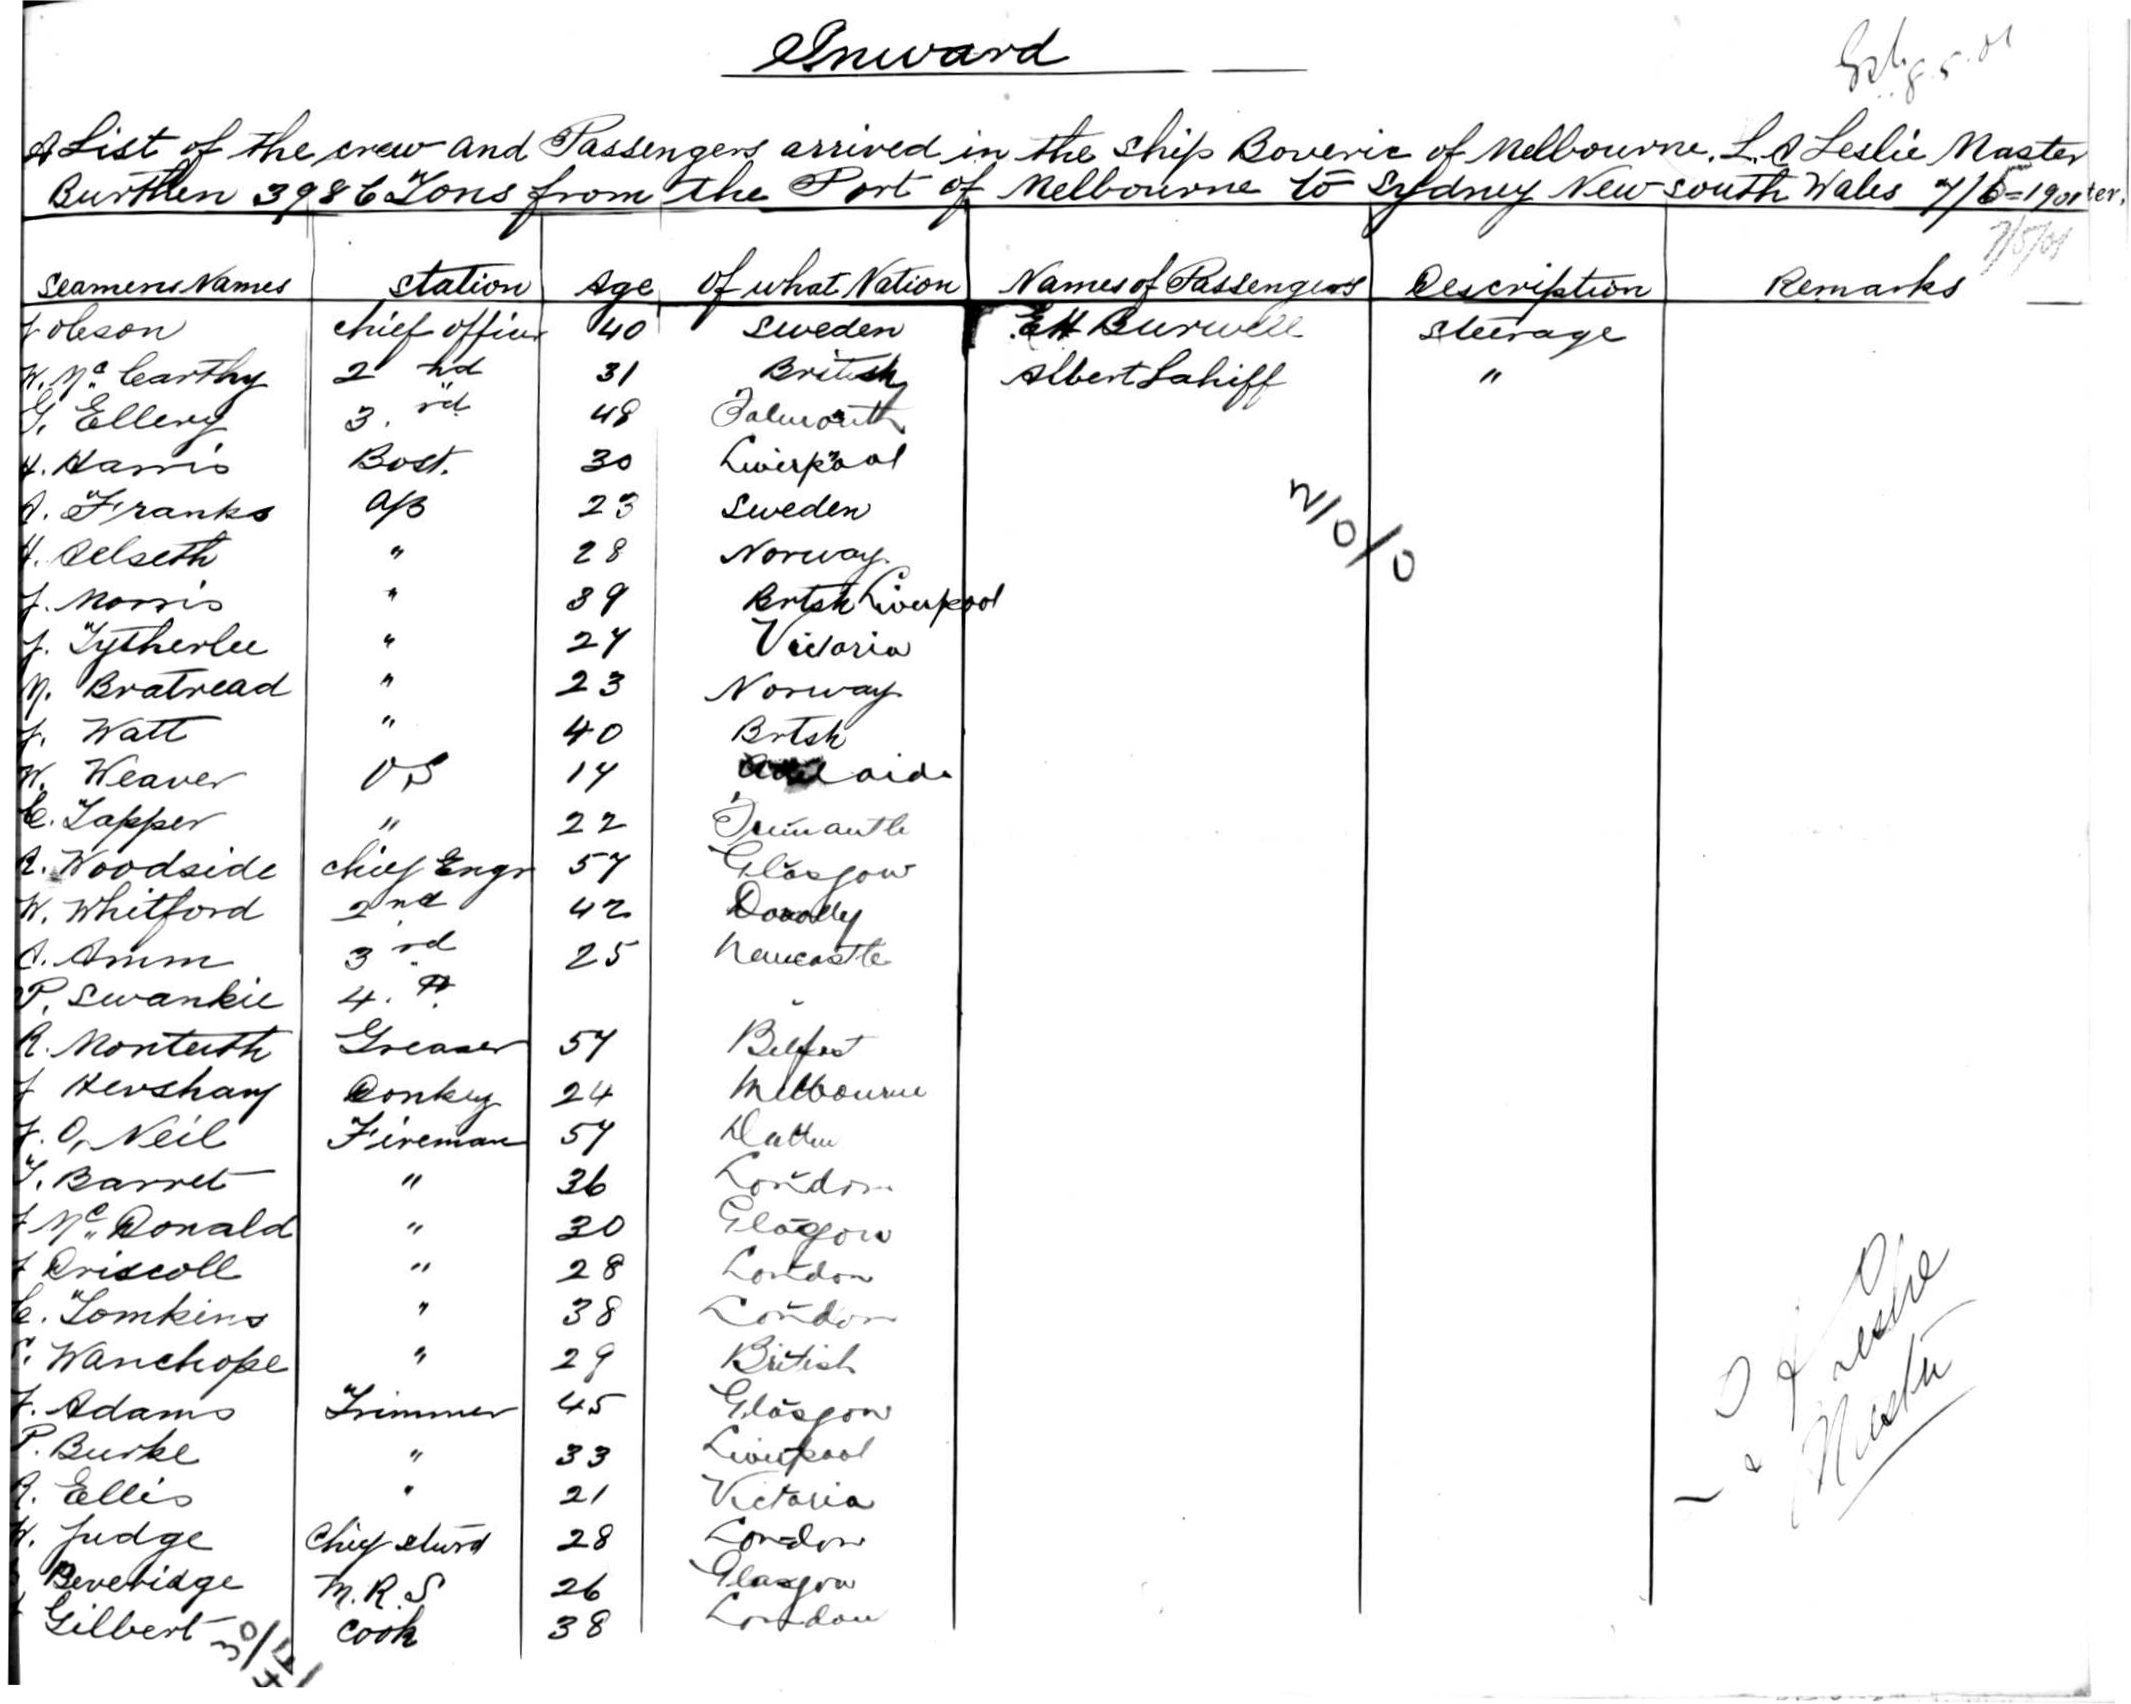 Inward
8.5.01
A List of the crew and Passengers arrived in the ship Boveric of Melbourne. L. A Leslie Master
Burthen 3986 Tons from the Port of Melbourne to Sydney New south Wales 7/5=1901
7/5/01
Seamens Names Station Age Of what Nation Names of Passengers Description Remarks
J oleson chief officer 40 Sweden EH Burwell Steerage
W. Mc Carthy 2 nd 31 British Albert Lahiff "
G. Ellery 3. rd 48 Falmouth
H. Harris Bost. 30 Liverpool
A. Franks A/B 23 Sweden
H. Aelseth " 28 Norway
J. Morris " 39 Brtsh Liverpool
J. Tytherlee " 27 Victoria
M. Bratread " 23 Norway
J. Watt " 40 Brtsh
W. Weaver OS 17 Adelaide
C. Tapper " 22 Fremantle
R. Woodside chief Engr 57 Glasgow
W. Whitford 2nd 42
A. Amm 3 rd 25 Newcastle
P. Swankie 4.
R. Monteith Greaser 57 Belfast
J Hershany Donkey 24 Melbourne
J. O, Neil Fireman 57
T. Barret " 36 London
J Mc Donald " 30 Glasgow
J Driscoll " 28 London
C. Tomkins " 38 London
Wanchope " 29 British
J. Adams Trimmer 45 Glasgow
P. Burke " 33 Liverpool
R. Ellis " 21 Victoria
W. Judge Chief sturd 28 London
Beveridge M.R.S 26 Glasgow
Gilbert Cook 38 London
2/0/0
Leslie
Master